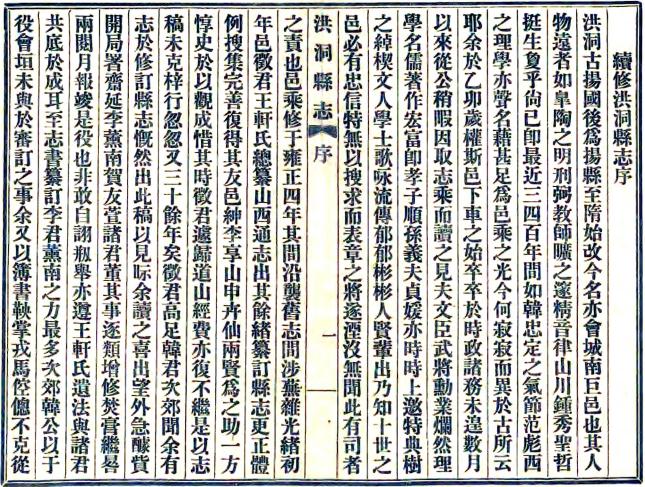 續修洪洞縣志序
洪洞古揚國後爲揚縣至隋始改今名亦會城南巨邑也其人
物遠者如皐陶之明刑弼教師曠之邃精音律山川鍾秀聖哲
挺生夐乎尙已卽最近三四百年間如韓忠定之氣節范彪西
之理學亦聲名藉甚足爲邑乘之光今何寂寂而異於古所云
耶余於乙卯歲權斯邑下車之始卒卒於時政諸務未遑數月
以來從公稍暇因取志乘而讀之見夫文臣武將勳業爛然理
學名儒著作宏富卽孝子順孫義夫貞媛亦時時上邀特典樹
之綽楔文人學士歌咏流傳郁郁彬彬人賢輩出乃知十世之
邑必有忠信特無以搜求而表章之將遂湮沒無聞此有司者
洪洞縣志 序 一
之責也邑乘修于雍正四年其間沿襲舊志間涉蕪雜光緒初
年邑徵君王軒氏總纂山西通志出其餘緒纂訂縣志更正體
例搜集完善復得其友邑紳李享山申卉仙兩賢爲之助一方
惇史於以觀成惜其時徵君遽歸道山經費亦復不繼是以志
稿未克梓行忽忽又三十餘年矣徵君高足韓君次郊聞余有
志於修訂縣志慨然出此稿以見眎余讀之喜出望外急醵貲
開局署齋延李薰南賀友萱諸君董其事逐類增修焚膏繼晷
兩閱月報竣是役也非敢自詡舉亦遵王軒氏遺法與諸君
共底於成耳至志書纂訂李君薰南之力最多次郊韓公以于
役會垣未與於審訂之事余又以簿書鞅掌戎馬倥傯不克從